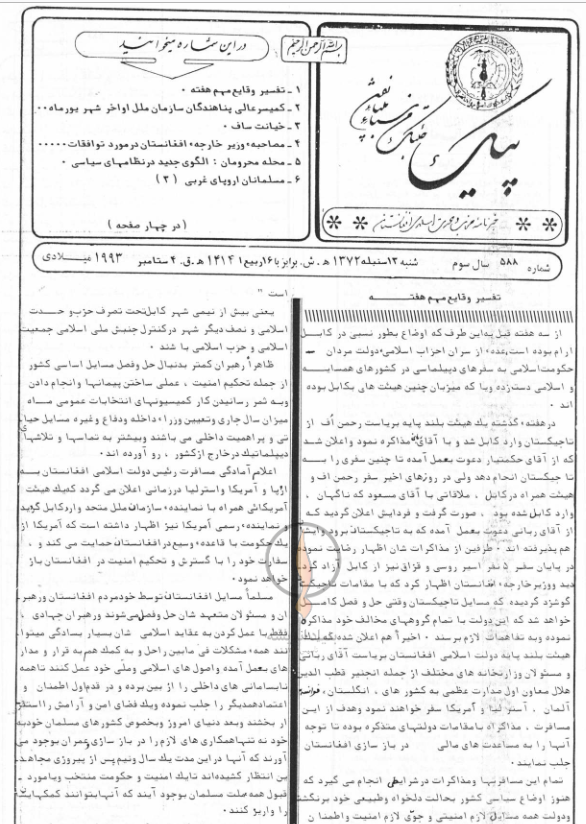 بسم الله الرحمن الرحیم
در این شماره میخوانید
۱ ـ تفسیر وقایع مهم هفته ۰
۲ ـ کمیسر عالی پناهندگان سازمان ملل اواخر شهریورماه۰۰
۳ ـ خیانت ساف ۰
۴ ـ مصاحبه وزیر خارجه افغانستان در مورد توافقات۰۰۰۰۰
۵ ـ محله محرومان : الگوی جدید در نظامهای سیاسی ۰
۶ ـ مسلمانان اروپای غربی ( ۳ )
( در چهار صفحه )
پیک
شماره ۵۸۸ سال سوم
شنبه ۱۳ سنبله ۱۳۷۲ ه . ش . برابر با ۱۶ ربیع۱ ۱۴۱۴ ه . ق . ۴ ستامبر ۱۹۹۳ میلادی
تفسیر وقایع مهم هفته
از سه هفته قبل به این طرف که اوضاع بطور نسبی در کابل
آرام بوده است عده از سران احزاب اسلامی و دولت مردان
حکومت اسلامی به سفرهای دیپلماسی در کشورهای همسایه
و اسلامی دست زده و یا که میزبان چنین هیئت های بکابل بوده
اند ۰
در هفته گذشته یک هیئت بلند پایه بریاست رحمن اف از
تاجیکستان وارد کابل شد و با آقای مذاکره نمود و اعلان شد
که از آقای حکمتیار دعوت بعمل آمده تا چنین سفری را به
تاجیکستان انجام دهد ولی در روزهای اخیر سفر رحمن اف و
هیئت همراه در کابل ، ملاقاتی با آقای مسعود که ناگهان
وارد کابل شده بود ، صورت گرفت و فردایش اعلان گردید که
از آقای ربانی دعوت بعمل آمده که به تاجیکستان برود وایشان
هم پذیرفته اند ۰ طرفین از مذاکرات شان اظهار رضایت نموده
در پایان سفر ۵ نفر اسیر روسی و قزاق نیز از کابل آزاد گرد
ید و وزیر خارجه افغانستان اظهار کرد که با مقامات تاجیک
گوشزد گردیده که مسایل تاجیکستان وقتی حل و فصل کامل
خواهد شد که این دولت با تمام گروههای مخالف خود مذاکره
نموده و به تفاهمات لازم برسند ۰ اخیرا هم اعلان شده که یک
هیئت بلند پایه دولت اسلامی افغانستان بریاست آقای ربانی
و مسئولان وزارتخانه های مختلف از جمله انجنیر قطب الدین
هلال معاون اول صدارت عظمی به کشور های ، انگلستان ، فرانسه
آلمان ، آسترلیا و آمریکا سفر خواهند نمود و هدف از این
مسافرت ، مذاکراه با مقامات دولتهای متذکره بوده تا توجه
آنها را به مساعدت های مالی در باز سازی افغانستان
جلب نمایند ۰
تمام این مسافرتها و مذاکرات در شرایطی انجام می گیرد که
هنوز اوضاع سیاسی کشور بحالت دلخواه و طبیعی خود برنگشته
و دولت همه مسایل لازم امنیتی و جوّی لازم امنیت و اطمنان
است "
یعنی بیش از نیمی شهر کابل تحت تصرف حزب وحدت
اسلامی و نصف دیگر شهر در کنترل جنبش ملی اسلامی جمعیت
اسلامی و حزب اسلامی با شند ۰
ظاهراً رهبران کمتر بدنبال حل و فصل مسایل اساسی کشور
از جمله تحکیم امنیت ، عملی ساختن پیمانها و انجام دادن
و به ثمر رساندن کار کمیسیونهای انتخابات عمومی ماه
میزان سال جاری و تعیین وزراء داخله و دفاع و غیره مسایل حیا
تی و پراهمیت داخلی می باشند و بیشتر به تماسها و تلاشهای
دیپلماتیک در خارج از کشور ، رو آورده اند ۰
اعلام آمادگی مسافرت رئیس دولت اسلامی افغانستان به
اروپا و آمریکا و استرلیا در زمانی اعلان می گردد که یک هیئت
آمریکائی همراه با نماینده سازمان ملل متحد وارد کابل گردید
و نماینده رسمی آمریکا نیز اظهار داشته است که آمریکا از
یک حکومت با قاعده وسیع در افغانستان حمایت می کند و ،
سفارت خود را با گسترش و تحکیم امنیت در افغانستان باز
خواهد نمود ۰
مسلماً مسایل افغانستان توسط خود مردم افغانستان و رهبر
ان و مسئولان متعهد شان حل و فصل می شوند و رهبران جهادی ،
فقط با عمل کردن به عقاید اسلامی شان بسیار بسادگی میتوا
نند همه مشکلات فی مابین را حل و به کمک هم به قرار و مدار
های بعمل آمده و اصول های اسلامی و ملّی خود عمل کنند تا همه
نابسامانی های داخلی را از بین برده و در قدم اول اطمنان و
اعتماد همدیگر را جلب نموده و یک فضای امن و آرامش را استقر
ار بخشند و بعد دنیای امروز و بخصوص کشورهای مسلمان خود به
خود نه تنها همکاری های لازم را در باز سازی و عمران بوجود می
آورند که آنها در این مدت یک سال و نیم پس از پیروزی مجاهد
ین انتظار کشیده اند تا یک امنیت و حکومت منتخب و یا مورد
قبول همه ملت مسلمان بوجود آیند که آنها بتوانند کمکهایت
را واریز کنند ۰